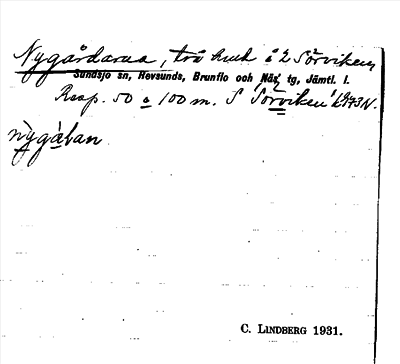 Nygårdarna, två hus å 2 Sörviken,
Sundsjö sn, Revsunds, Brunflo och Näs tg, Jämtl. l.
Resp. 50 o 100 m. S Sörviken
nygàḷan
C. LINDBERG 1931.